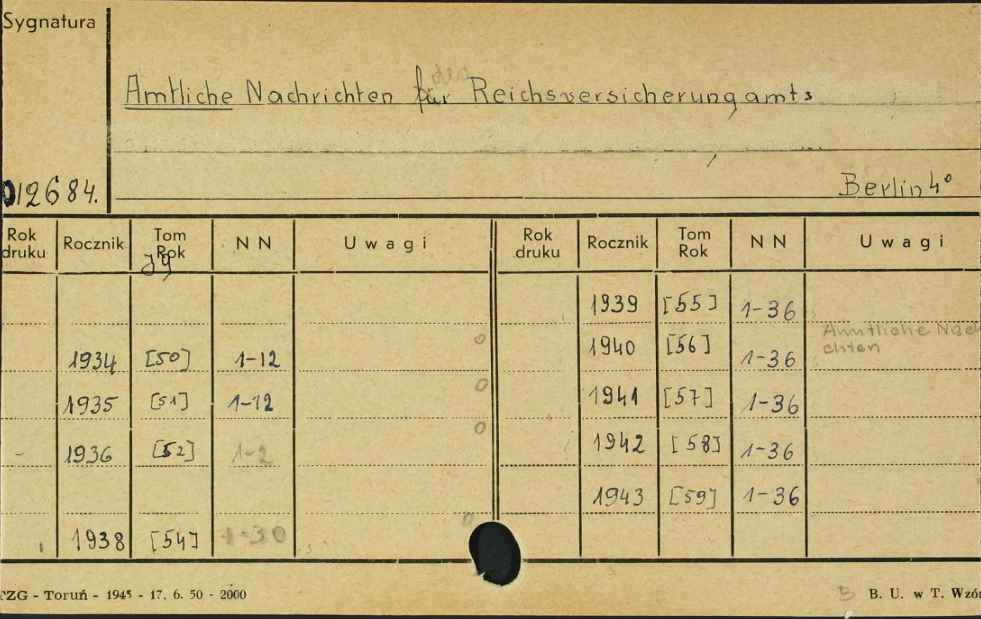 Sygnatura
des
Amtliche Nachrichten für Reichsversicherungamts
012684.
Berlin 4°
Rok druku Rocznik Tom Rok NN Uwagi Rok druku Rocznik Tom Rok NN Uwagi
Jg
1939 [55] 1-36
1934 [50] 1-12 1940 [56] 1-36 Amtliche Nach
chten
1935 [51] 1-12 1941 [57] 1-36
1936 [52] 1-2 1942 [58] 1-36
1943 [59] 1-36
1938 [54] 1-30
PZG - Toruń - 1945 - 17. 6. 50 - 2000 B B. U. w T. Wzór